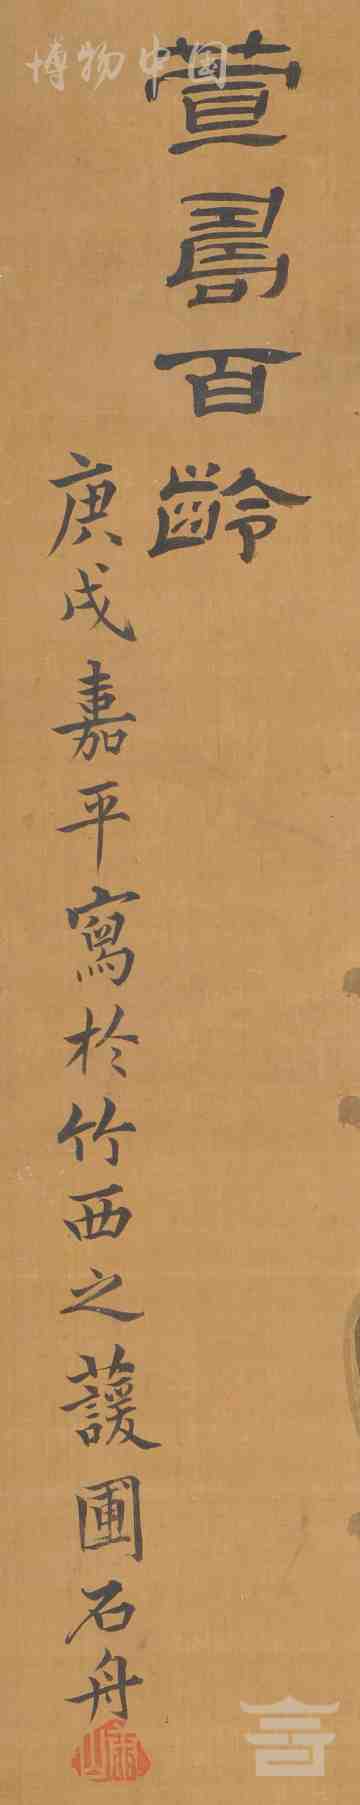 博物中国
萱壽百齡
庚戌嘉平寫於竹西之蘐圃石舟